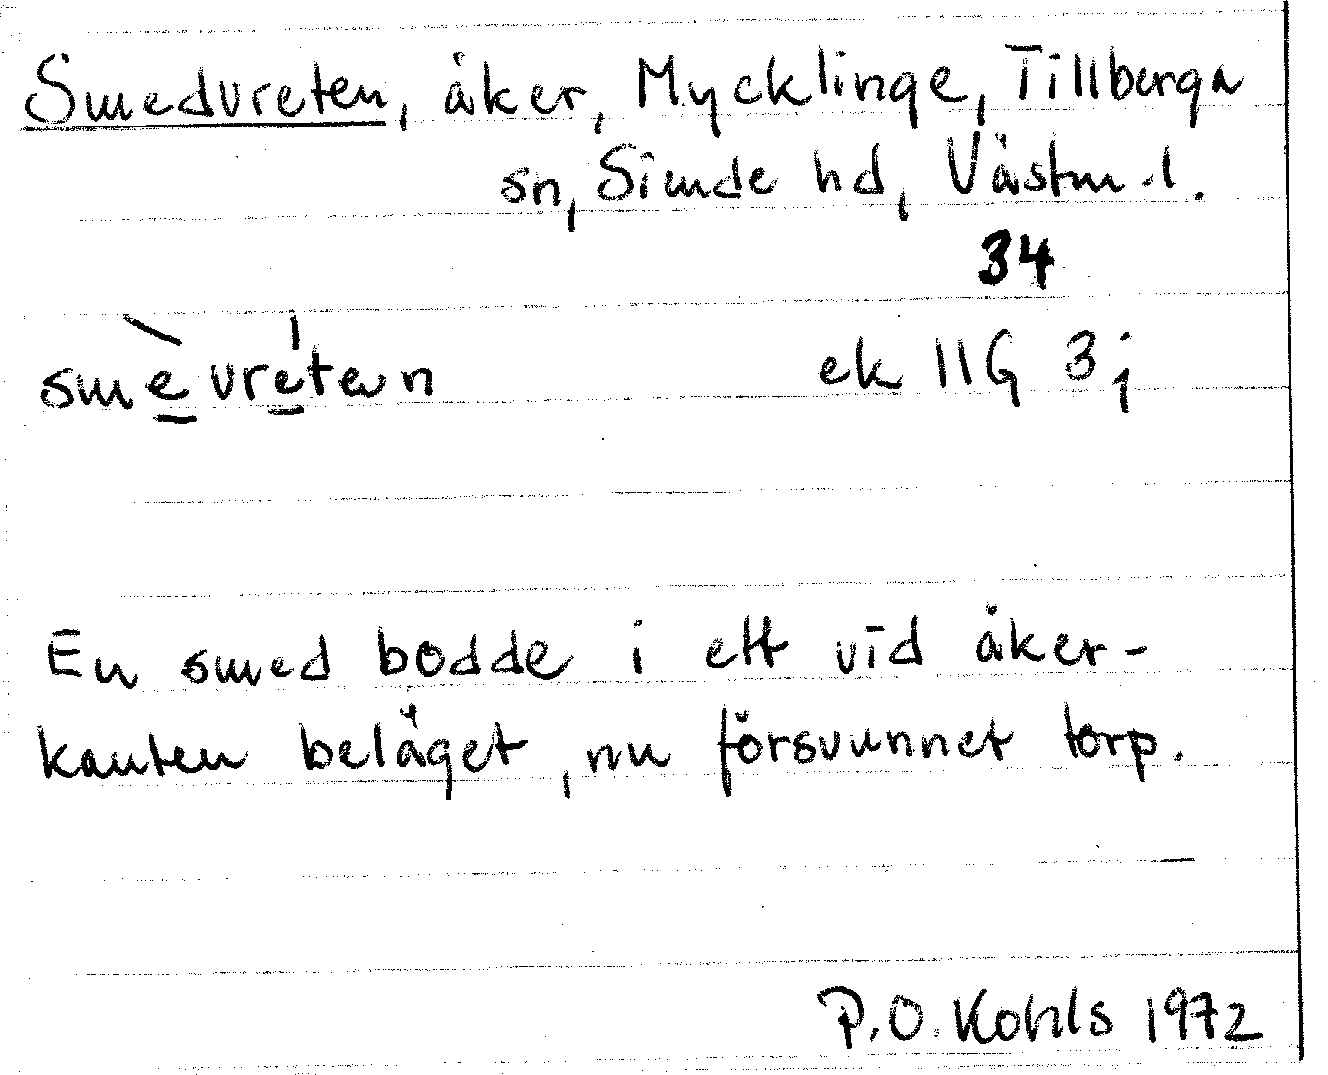 Smedvreten, åker, Mycklinge, Tillberga
sn, Siende hd, Västm.l.
34
smèvréten ek 11G 3j
En smed bodde i ett vid åker-
kanten beläget, nu försvunnet torp.
P.O. Kohls 1972